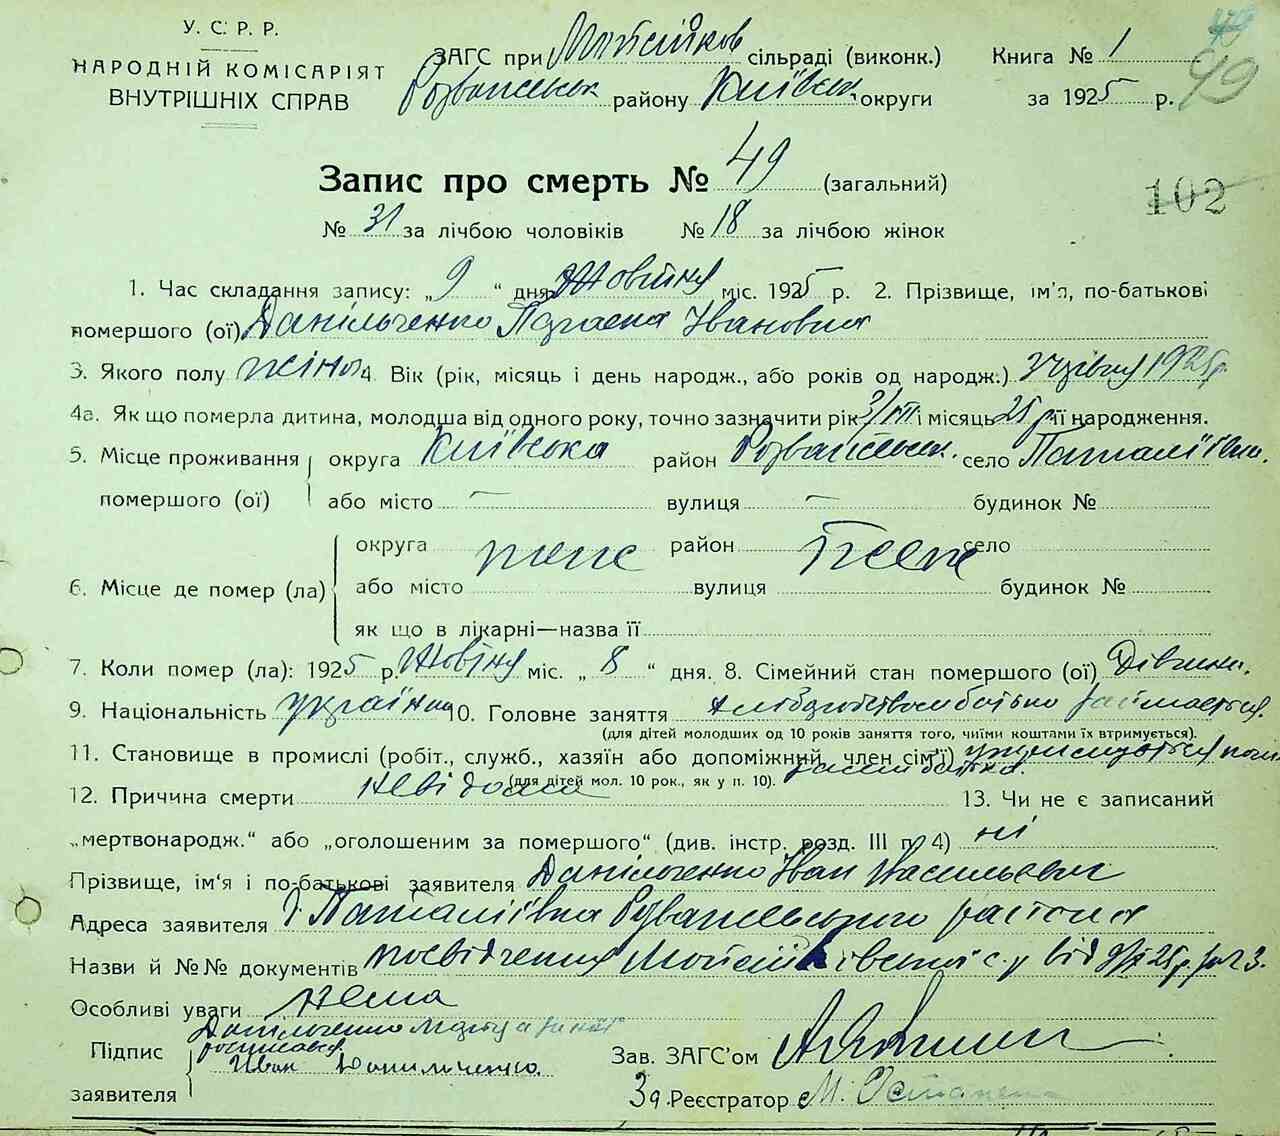 У. С. Р. Р.
НАРОДНІЙ КОМІСАРІЯТ
ВНУТРІШНІХ СПРАВ
ЗАГС при Мойсійков сільраді (виконк.)
Розважевськ району Київськ округи
Книга № 1
за 1925 р.
49
Запис про смерть № 49 (загальний)
102
№ 31 за лічбою чоловіків № 18 за лічбою жінок
1. Час складання запису: „9“ дня Жовтня міс. 1925 р. 2. Прізвище, ім'я, по-батькові
помершого (ої) Данільченко Івановна
3. Якого полу жіноч 4. Вік (рік, місяць і день народж., або років од народж.) 3 1925р
4а. Як що померла дитина, молодша від одного року, точно зазначити рік 3/VII і місяць 25 р її народження.
5. Місце проживання округа Київська район Розважевськ. село Паталіївка.
помершого (ої) або місто — вулиця — будинок №
6. Місце де помер (ла) округа теж район теж село
або місто вулиця будинок №
як що в лікарні—назва її
7. Коли помер (ла): 1925 р. Жовтня міс. „8“ дня. 8. Сімейний стан помершого (ої) Дівчина.
9. Національність українка 10. Головне заняття хліборобством батько займається.
(для дітей молодших од 10 років заняття того, чиїми коштами їх втримується).
11. Становище в промислі (робіт., служб., хазяїн або допоміжний член сім'ї) утримується
(для дітей мол. 10 рок., як у п. 10). батька.
12. Причина смерти невідома 13. Чи не є записаний
„мертвонародж.“ або „оголошеним за помершого“ (див. інстр. розд. III п. 4) ні
Прізвище, ім'я і по-батькові заявителя Данільченко Іван Васильевич
Адреса заявителя с. Паталіївка Розважевського района
Назви й №№ документів посвідчення Мойсійківської с. р від 9/X 25р. за № 3.
Особливі уваги нема
Підпис Данільченко
заявителя росписався Иван Данильченко.
Зав. ЗАГС'ом
За Реєстратор М.